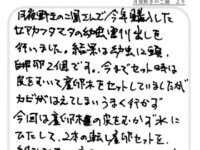 月夜野きのこ園 より
月夜野きのこ園さんで今年購入した
セアカフタマタの幼虫割り出しを
行いました。結果は幼虫三頭、
白卵2個です。今までセット時は
皮をむいて産卵木をセットしていましたが
カビがはえてしまいうまく行かず
今回は産卵木の皮をむかず水に
ひたして、2本の転し産卵セットを